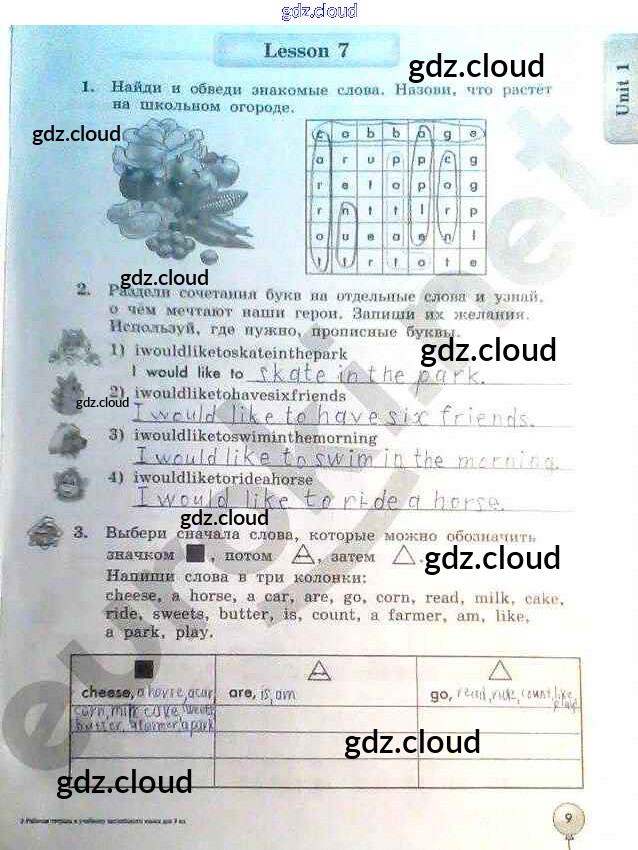 gdz.cloud
Lesson 7
gdz.cloud
Unit 1
1. Найди и обведи знакомые слова. Назови, что растёт
на школьном огороде.
gdz.cloud
c a b b a g e
a r u p p c g
r e t o p o g
r n t t l r p
o u e a e n l
t t r t o t e
gdz.cloud
2. Раздели сочетания букв на отдельные слова и узнай,
о чём мечтают наши герои. Запиши их желания.
Используй, где нужно, прописные буквы.
1) iwouldliketoskateinthepark
gdz.cloud
I would like to skate in the park.
2) iwouldliketohavesixfriends
gdz.cloud
I would like to have six friends.
3) iwouldliketoswiminthemorning
I would like to swim in the morning.
4) iwouldliketorideahorse
I would like to ride a horse.
gdz.cloud
3. Выбери сначала слова, которые можно обозначить
значком , потом , затем .
gdz.cloud
Напиши слова в три колонки:
cheese, a horse, a car, are, go, corn, read, milk, cake,
ride, sweets, butter, is, count, a farmer, am, like,
a park, play.
cheese, a horse, a car,
corn, milk cake, sweets
butter, a farmer a park
are, is, am
go, read, ride, count, like
play
gdz.cloud
gdz.cloud
euroki.net
9
gdz.cloud